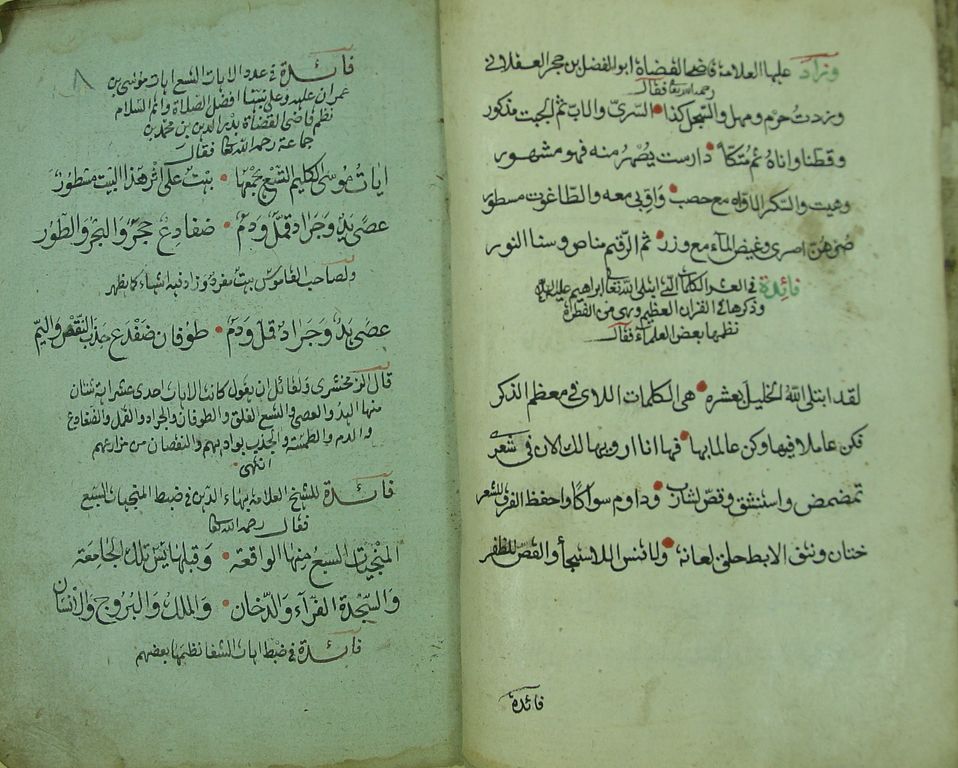 وزاد عليها العلامة قاضي القضاة ابو الفضل بن حجر العسقلاني
رحمه الله تعا فقال
وزدت حرم ومهل والسجل كذا السري والاب ثم الجبت مذكور
وقطنا واناه ثم متكأ دارست يصهر منه فهو مشهور
وهيت والسكر الاواه مع حصب واوبي معه والطاغوت مسطور
صرهن اصري وغيض الماء مع وزر ثم الرقيم مناص وسنا النور
فائدة في العشر الكلمات التي ابتلى الله تعا ابراهيم عليه
وذكرها في القران العظيم وهي من الفطرة
نظمها بعض العلماء فقال
لقد ابتلى الله الخليل بعشرة هي الكلمات اللاي في معظم الذكر
فكن عاملا فيها وكن عالما بها فها انا ارويها لك الان في شعر
تمضمض واستنشق وقص لشارب وداوم سواكا واحفظ الفرق للشعر
ختان ونتف الابط حلق لعانة ولا تنس الاستنجا والقص للظفر
فائدة
فائدة في عدد الايات التسع ايات موسى بن
عمران عليه وعلى نبينا افضل الصلاة واتم السلام
نظم قاضي القضاة بدر الدين بن محمد بن
جماعة رحمه الله تعا فقال
ايات موسى الكليم التسع يجمعها بيت على اثر هذا البيت مسطور
عصى يد وجراد قمل ودم ضفادع حجر والبحر والطور
ولصاحب القاموس بيت مفرد وزاد فيه اشياء كما يظهر
عصى يد وجراد قمل ودم طوفان ضفدع جذب النقص واليم
قال الزمخشري ولقائل ان يقول كانت الايات احدى عشرة ثنتان
منها اليد والعصى والتسع الفلق والطوفان والجراد والقمل والضفادع
والدم والطمسة والجذب بواديهم والنقصان من مزارعهم
انتهى
فائدة للشيخ العلامة بهاء الدين في ضبط المنجيات السبع
فقال رحمه الله تعا
المنجيات السبع منها الواقعة وقبلها يس تلك الجامعة
والسجدة الغراء والدخان والملك والبروج والانسان
فائدة في ضبط ايات الشفا نظمها بعضهم